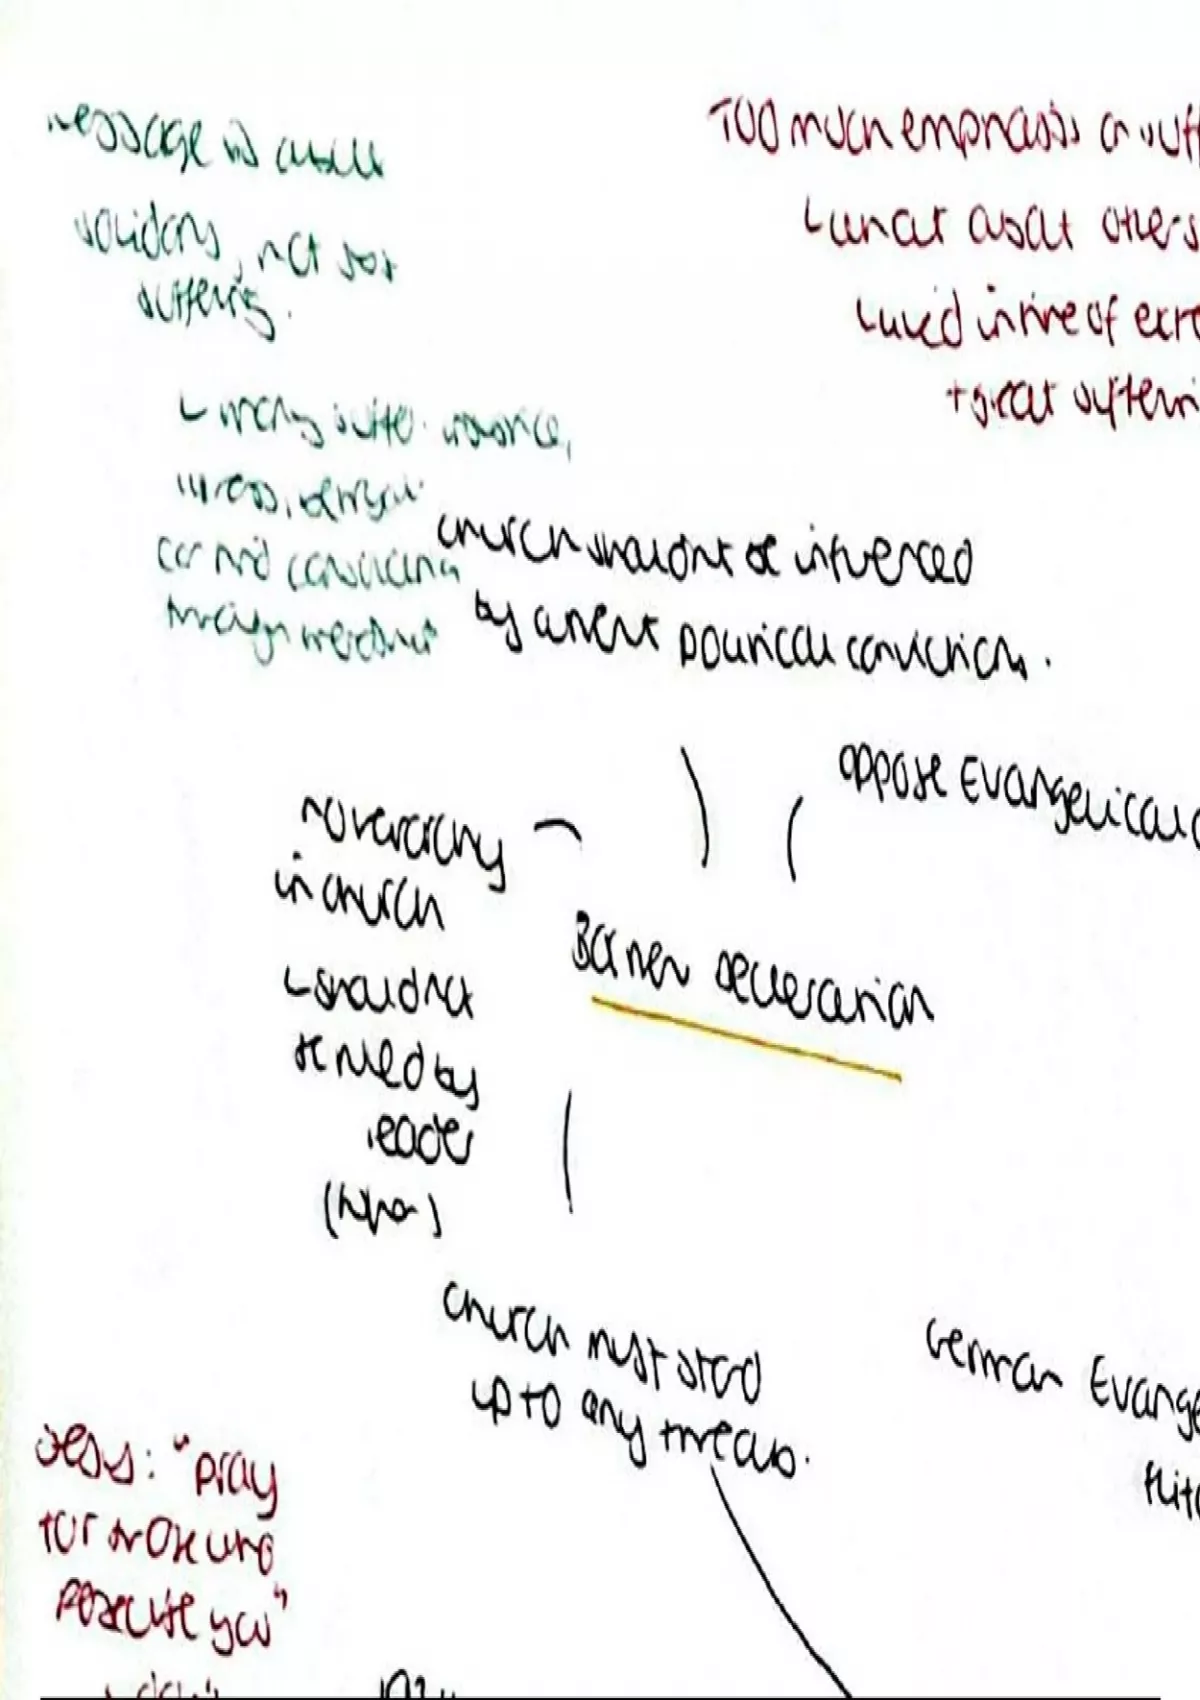 message is about
solidarity, not just
suffering.
↳ many suffer
can find
through
Too much emphasis on suff
↳ what about others
↳ lived in time of extr
+ great sufferin
church shouldn't be influenced
by current political convictions.
oppose Evangelical
no hierarchy
in church
↳ should not
be ruled by
leader
Barmen decleration
church must stand
up to any threats.
German Evange
Hitl
Jesus: "pray
for those who
persecute you"